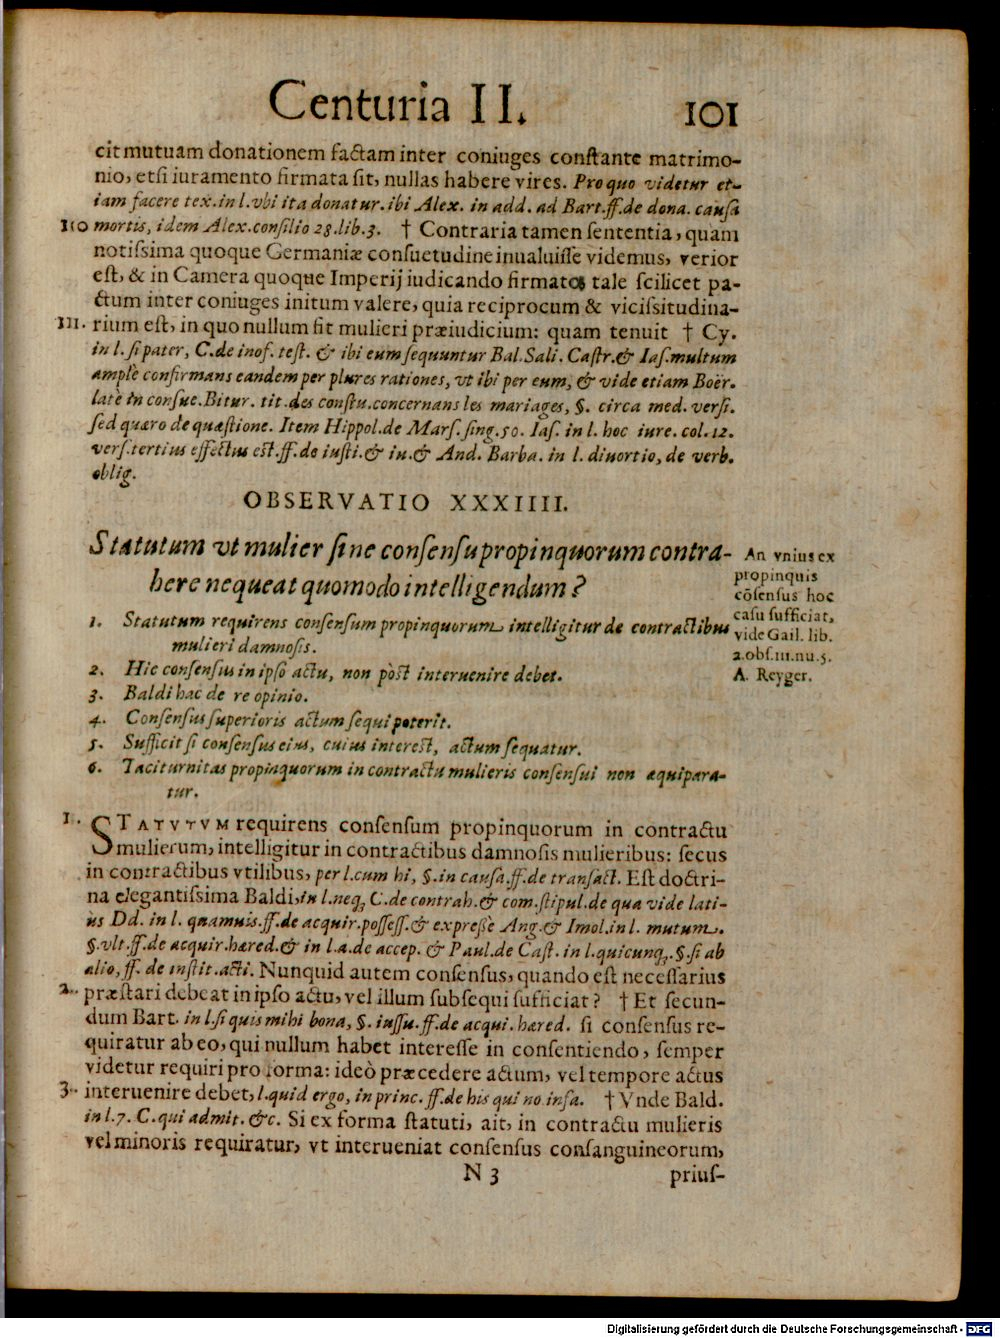 Centuria II. 101
cit mutuam donationem factam inter coniuges constante matrimo-
nio, etsi iuramento firmata sit, nullas habere vires. Pro quo videtur et-
iam facere tex. in l. vbi ita donatur. ibi Alex. in add. ad Bart. ff. de dona. causa
110 mortis, idem Alex. consilio 28. lib. 3. † Contraria tamen sententia, quam
notissima quoque Germaniæ consuetudine inualuisse videmus, verior
est, & in Camera quoque Imperij iudicando firmatos tale scilicet pa-
ctum inter coniuges initum valere, quia reciprocum & vicissitudina-
111. rium est, in quo nullum sit mulieri præiudicium: quam tenuit † Cy.
in l. si pater, C. de inof. test. & ibi eum sequuntur Bal. Sali. Castr. & Ias. multum
amplè confirmans eandem per plures rationes, vt ibi per eum, & vide etiam Boër.
latè in consue. Bitur. tit. des constu. concernans les mariages, §. circa med. versi.
sed quæro de quæstione. Item Hippol. de Mars. sing. 50. Ias. in l. hoc iure. col. 12.
vers. tertius effectus est. ff. de iusti. & iu. & And. Barba. in l. diuortio, de verb.
oblig.
OBSERVATIO XXXIIII.
Statutum vt mulier sine consensu propinquorum contra-
here nequeat quomodo intelligendum?
An vnius ex
propinquis
cõsensus hoc
casu sufficiat,
vide Gail. lib.
2. obs. 111. nu. 5.
A. Reyger.
1. Statutum requirens consensum propinquorum intelligitur de contractibus
mulieri damnosis.
2. Hic consensus in ipso actu, non pòst interuenire debet.
3. Baldi hac de re opinio.
4. Consensus superioris actum sequi poterit.
5. Sufficit si consensus eius, cuius interest, actum sequatur.
6. Taciturnitas propinquorum in contractu mulieris consensui non æquipara-
tur.
1. STATVTVM requirens consensum propinquorum in contractu
mulierum, intelligitur in contractibus damnosis mulieribus: secus
in contractibus vtilibus, per l. cum hi, §. in causa. ff. de transact. Est doctri-
na elegantissima Baldi, in l. neq; C. de contrah. & com. stipul. de qua vide lati-
us Dd. in l. quamuis. ff. de acquir. possess. & expressè Ang. & Imol. in l. mutum.
§. vlt. ff. de acquir. hæred. & in l. a. de accep. & Paul. de Cast. in l. quicunq;. §. si ab
alio, ff. de instit. acti. Nunquid autem consensus, quando est necessarius
2. præstari debeat in ipso actu, vel illum subsequi sufficiat? † Et secun-
dum Bart. in l. si quis mihi bona, §. iussu. ff. de acqui. hæred. si consensus re-
quiratur ab eo, qui nullum habet interesse in consentiendo, semper
videtur requiri pro forma: ideò præcedere actum, vel tempore actus
3. interuenire debet, l. quid ergo, in princ. ff. de his qui no. infa. † Vnde Bald.
in l. 7. C. qui admit. &c. Si ex forma statuti, ait, in contractu mulieris
vel minoris requiratur, vt interueniat consensus consanguineorum,
N 3 prius-
Digitalisierung gefördert durch die Deutsche Forschungsgemeinschaft - DFG